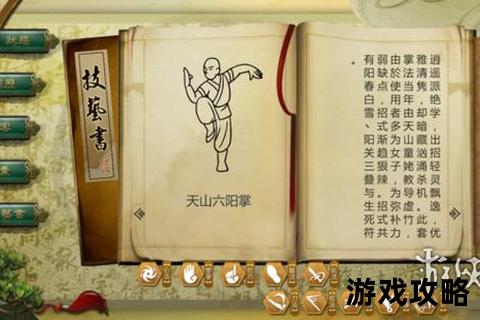 狀態
技藝書
天山六阳掌
逍遥派绝学，出招轻灵飘逸，优
雅清隽，却暗藏汹涌杀机。此套
掌法当年由天山童姥教导虚竹，
由於使用者多为女子，为弥补力
弱缺点，招式渐趋狠辣。招式共
有阳春白雪、阳关三叠与生死符
游戏攻略